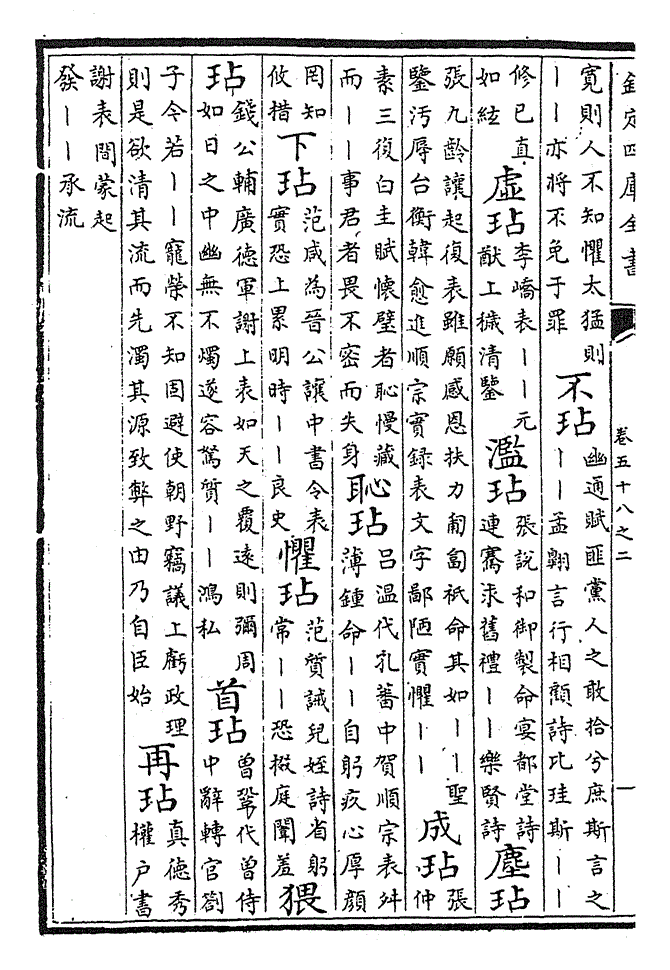 欽定四庫全書
卷五十八之二
一
寛則人不知懼太猛則
丨丨亦將不免于罪
不玷
幽通賦匪黨人之敢拾兮庶斯言之
丨丨孟翺言行相顧詩比珪斯丨丨
修已真
如絃
虛玷
李嶠表丨丨元
猷上穢清鑒
濫玷
張說和御製命宴都堂詩
連騫求舊禮丨丨樂賢詩
塵玷
張九齡讓起復表雖願感恩扶力匍匐祇命其如丨丨聖
鑒汚辱台衡韓愈進順宗實錄表文字鄙陋實懼丨丨
成玷
張
仲
素三復白圭賦懷璧者恥慢藏
而丨丨事君者畏不密而失身
恥玷
吕温代孔蕃中賀順宗表舛
薄鍾命丨丨自躬疚心厚顔
罔知
攸措
下玷
范咸為晉公讓中書令表
實恐上累明時丨丨良史
懼玷
范質誡兒姪詩省躬
常丨丨恐掇庭闈羞
猥
玷
錢公輔廣德軍謝上表如天之覆遠則彌周
如日之中幽無不燭遂容駑質丨丨鴻私
首玷
曾鞏代曾侍
中辭轉官劄
子令若丨丨寵榮不知固避使朝野竊議上虧政理
則是欲清其流而先濁其源致弊之由乃自臣始
再玷
真德秀
權户書
謝表間蒙起
發丨丨承流